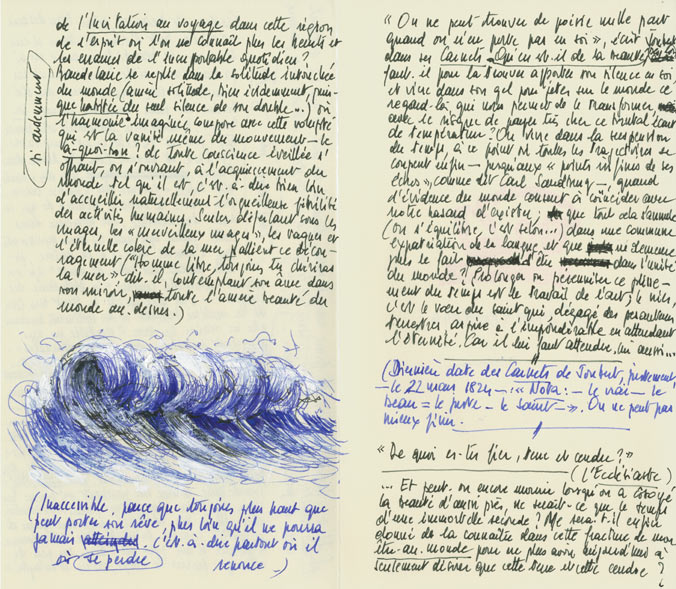 de l'Incitation au voyage dans cette région
de l'esprit où l'on ne connaît plus les heurts et
les errances de l'insupportable quotidien ?
Baudelaire se replie dans la solitude intouchée
du monde (amère solitude, bien évidemment, puis-
que hantée du seul silence de son double...) où
l'harmonie imaginée compose avec cette volupté
qui est la vanité même du mouvement — le
à-quoi-bon ? de toute conscience éveillée s'
offrant, ou s'ouvrant, à l'acquiescement du
monde tel qu'il est, c'est-à-dire bien loin
d'accueillir naturellement l'orgueilleuse fébrilité
des activités humaines. Seuls déferlant sous les
nuages, les « merveilleux nuages », les vagues et
l'éternelle colère de la mer pallient ce décou-
ragement ("Homme libre, toujours tu chériras
la mer" dit-il, contemplant son âme dans
son miroir, toute l'amère beauté du
monde au-dedans.)
si ardemment
(Inaccessible, parce que toujours plus haut que
peut porter son rêve, plus loin qu'il ne pourra
jamais c'est-à-dire partout où il
se perdre renonce —)
« On ne peut trouver de poésie nulle part
quand on n'en porte pas en soi », écrit Joubert
dans ses Carnets. Qu'en est-il de la beauté ?
faut-il pour la trouver apporter son silence en soi,
et vivre dans son gel pour jeter sur le monde ce
regard-là, qui nous permet de le transformer
avec le risque de payer très cher ce brutal écart
de température ? On vivre dans la suspension
du temps, à ce point où toutes les trajectoires se
coupent enfin — jusqu'aux « points infimes de ses
échos », comme dit Carl Sandburg —, quand
l'évidence du monde commet à coïncider avec
notre hasard d'exister, que tout cela s'annule
(ou s'équilibre, c'est selon...) dans une commune
expatriation de la langue et que ne demeure
plus le fait d'être dans l'unité
du monde ? Prolonger ou pérenniser ce pleine-
ment du temps est le travail de l'art, le nier,
c'est le vœu du saint qui, dégagé des pesanteurs
terrestres, aspire à l'impondérable en attendant
l'éternité. Car il lui faut attendre, lui aussi...
(Dernière date des Carnets de Joubert, justement
— le 22 mars 1824 — : « Nota : — le vrai — le
beau — le juste — le saint — ». On ne peut pas
mieux finir.
« De quoi es-tu fier, terre et cendre ? »
(L'Ecclésiaste)
... Et peut-on encore mourir lorsqu'on a côtoyé
la beauté d'aussi près, ne serait-ce que le temps
d'une immortelle seconde ? Me sera-t-il enfin
donné de la connaître dans cette fracture de mon
être-au-monde pour ne plus avoir aujourd'hui à
seulement désirer que cette terre et cette cendre ?